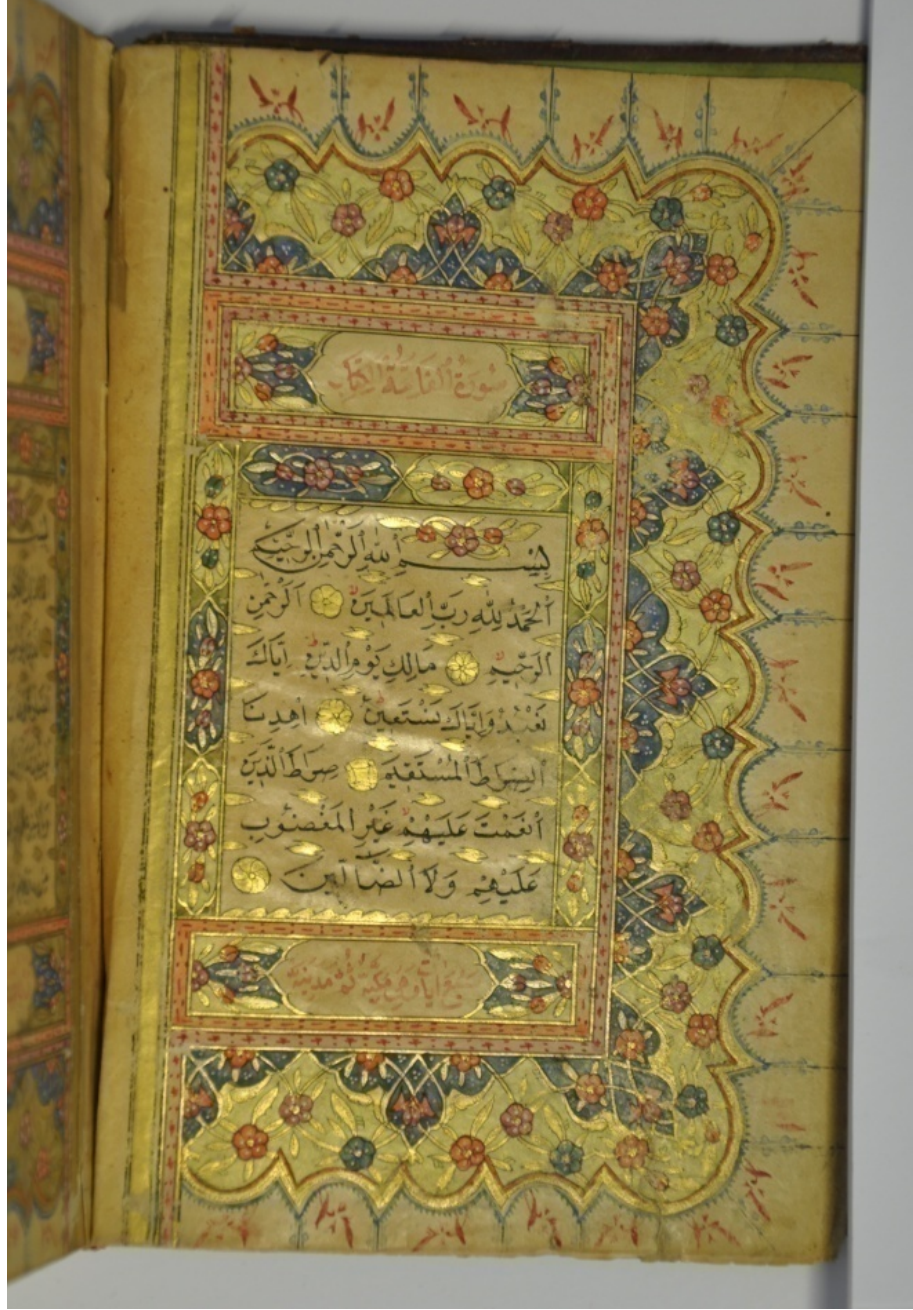 سورة الفاتحة الكتاب
بِسْمِ اللَّهِ الرَّحْمٰنِ الرَّحِيمِ
اَلْحَمْدُ لِلَّهِ رَبِّ الْعَالَمِينَ اَلرَّحْمٰنِ
الرَّحِيمِ مَالِكِ يَوْمِ الدِّينِ اِيَّاكَ
نَعْبُدُ وَاِيَّاكَ نَسْتَعِينُ اِهْدِنَا
الصِّرَاطَ الْمُسْتَقِيمَ صِرَاطَ الَّذِينَ
اَنْعَمْتَ عَلَيْهِمْ غَيْرِ الْمَغْضُوبِ
عَلَيْهِمْ وَلَا الضَّٓالِّينَ
سبع ايات وهي مكية مدنية